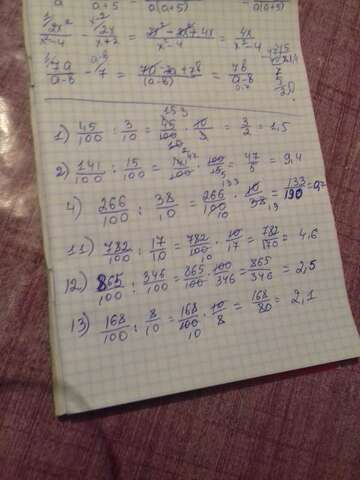 a a+5 a(a+5) a(a+5)
2x²/x²-4 - 2x/x+2 = 2x²-2x²+4x/x²-4 = 4x/x²-4
7a/a-b - 7 = 7a-7a+7b/(a-b) = 7b/a-b
1) 45/100 : 3/10 = 45/100 · 10/3 = 3/2 = 1,5
2) 141/100 : 15/100 = 141/100 · 100/15 = 47/5 = 9,4
4) 266/100 : 38/10 = 266/100 · 10/38 = 133/190 = 0,7
11) 782/100 : 17/10 = 782/100 · 10/17 = 782/170 = 4,6
12) 865/100 : 346/100 = 865/100 · 100/346 = 865/346 = 2,5
13) 168/100 : 8/10 = 168/100 · 10/8 = 168/80 = 2,1